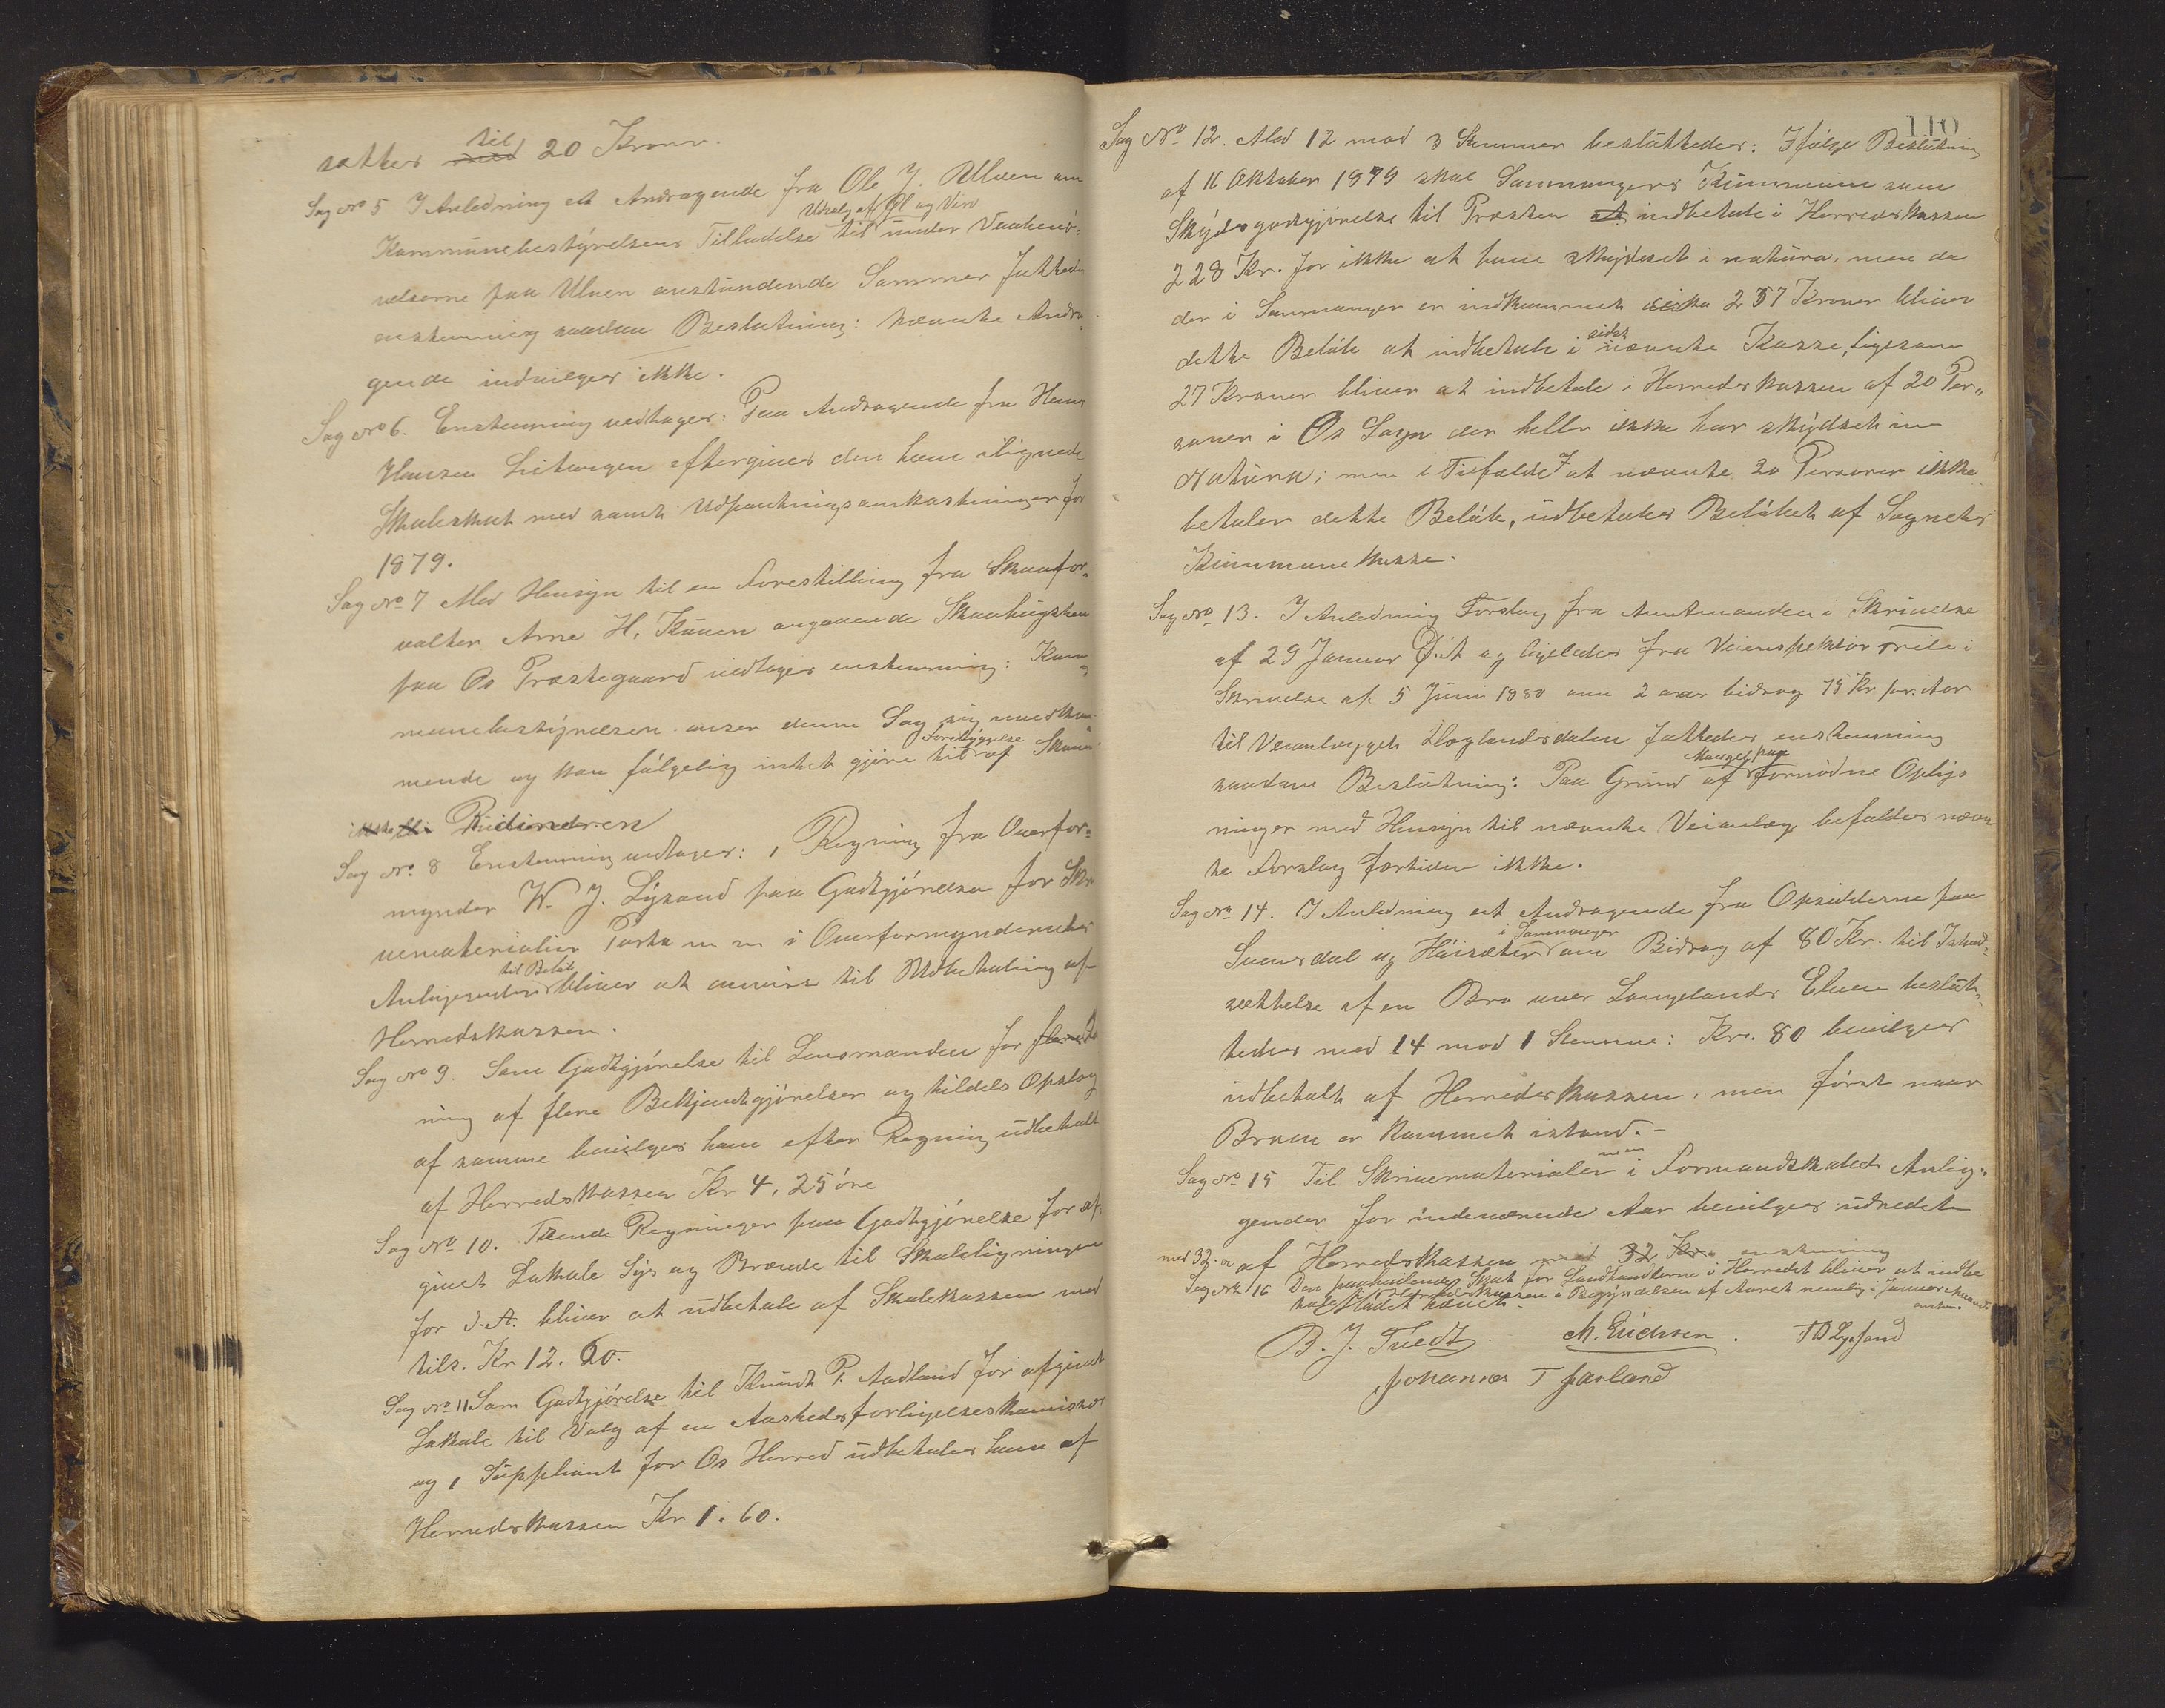 sættes med til 20 Kroner.
Sag No 5 I Anledning et Andragende fra Ole J. Ulven om
Kommunebestyrelsens Tilladelse til Udsalg af Øl og Vin under Vaabenø-
velserne paa Ulven anstundende Sommer fattedes
enstemmig saadan Beslutning: nævnte Andra-
gende indvilges ikke.
Sag No 6. Enstemmig vedtages: Paa Andragende fra Hans
Hansen eftergives den ham ilignede
Skoleskat med samt Udpantningsomkostninger for
1879.
Sag No 7 Med Hensyn til en Forestilling fra Skovfor-
valter Arne H. angaaende Skovhugsten
paa Os Præstegaard vedtages enstemmig: Kom-
munebestyrelsen anser denne Sag sig uvedkom-
mende og kan følgelig intet gjøre til Forebyggelse af Skovens
Ruineren
Sag No 8 Enstemmig vedtages: 1 Regning fra Overfor-
mynder W. J. Lysand paa Godtgjørelse for Skri-
vematerialier Porto m m i Overformynderiets
Anliggender til Beløb bliver at anvise til Udbetaling af
Herredskassen.
Sag No 9. Som Godtgjørelse til Lensmanden for
ning af flere Bekjendtgjørelser og tildels Opslag
af samme bevilges ham efter Regning udbetalt
af Herredskassen Kr 4,25 øre
Sag No 10. Tvende Regninger paa Godtgjørelse for af-
givet Lokale Lys og Brænde til Skoleligningen
for d. A. bliver at udbetale af Skolekassen med
tils. Kr 12. 60.
Sag No 11 Som Godtgjørelse til Knudt P. Aadland for afgivet
Lokale til Valg af en Aastedsforligelseskomissær
og 1 Suppliant for Os Herred udbetales ham af
Herredskassen Kr 1. 60.
110
Sag No 12. Med 12 mod 3 Stemmer besluttedes: Ifølge Beslutning
af 16 Oktober 1879 skal Samnangers Kommune som
Skydsgodtgjørelse til Præsten at indbetale i Herredskassen
228 Kr. for ikke at have skydset i natura, men da
der i Samnanger er indkommet 257 Kroner bliver
dette Beløb at indbetale i sidst nævnte Kasse, ligesom
27 Kroner bliver at indbetale i Herredskassen af 20 Per-
soner i Os Sogn der heller ikke har skydset in
Natura; men i Tilfælde af at nævnte 20 Personer ikke
betaler dette Beløb, udbetales Beløbet af Sognets
Kommunekasse.
Sag No 13. I Anledning Forslag fra Amtmanden i Skrivelse
af 29 Januar og ligeledes fra Veiinspektør i
Skrivelse af 5 Juni 1880 om 2 aar bidrag 75 Kr pr. Aar
til Veianlægget Hoglandsdalen fattedes enstemmig
saadan Beslutning: Paa Grund af Mangel paa fornødne Oplys-
ninger med Hensyn til nævnte Veianlæg befaldes nævn-
te Forslag fortiden ikke.
Sag No 14. I Anledning et Andragende fra Opsidderne paa
Svensdal og Høisæter i Samnanger om Bidrag af 80 Kr. til Istand-
sættelse af en Bro over Langelands Elven beslut-
tedes med 14 mod 1 Stemme: Kr. 80 bevilges
udbetalt af Herredskassen, men først naar
Broen er kommet istand. –
Sag No 15 Til Skrivematerialer m m i Formandskabets Anlig-
gender for indeværende Aar bevilges udredet
af Herredskassen med 32 Kr. enstemmig
Sag No 16 Den paahvilende Skat for Landhandlerne i Herredet bliver at indbe
tale i Herredskassen i Begyndelsen af Aaret nemlig i Januar Maaned
Mødet hævet.
B. J. Tvedt. M. Erichsen. Lysand
Johannes T Gaaland